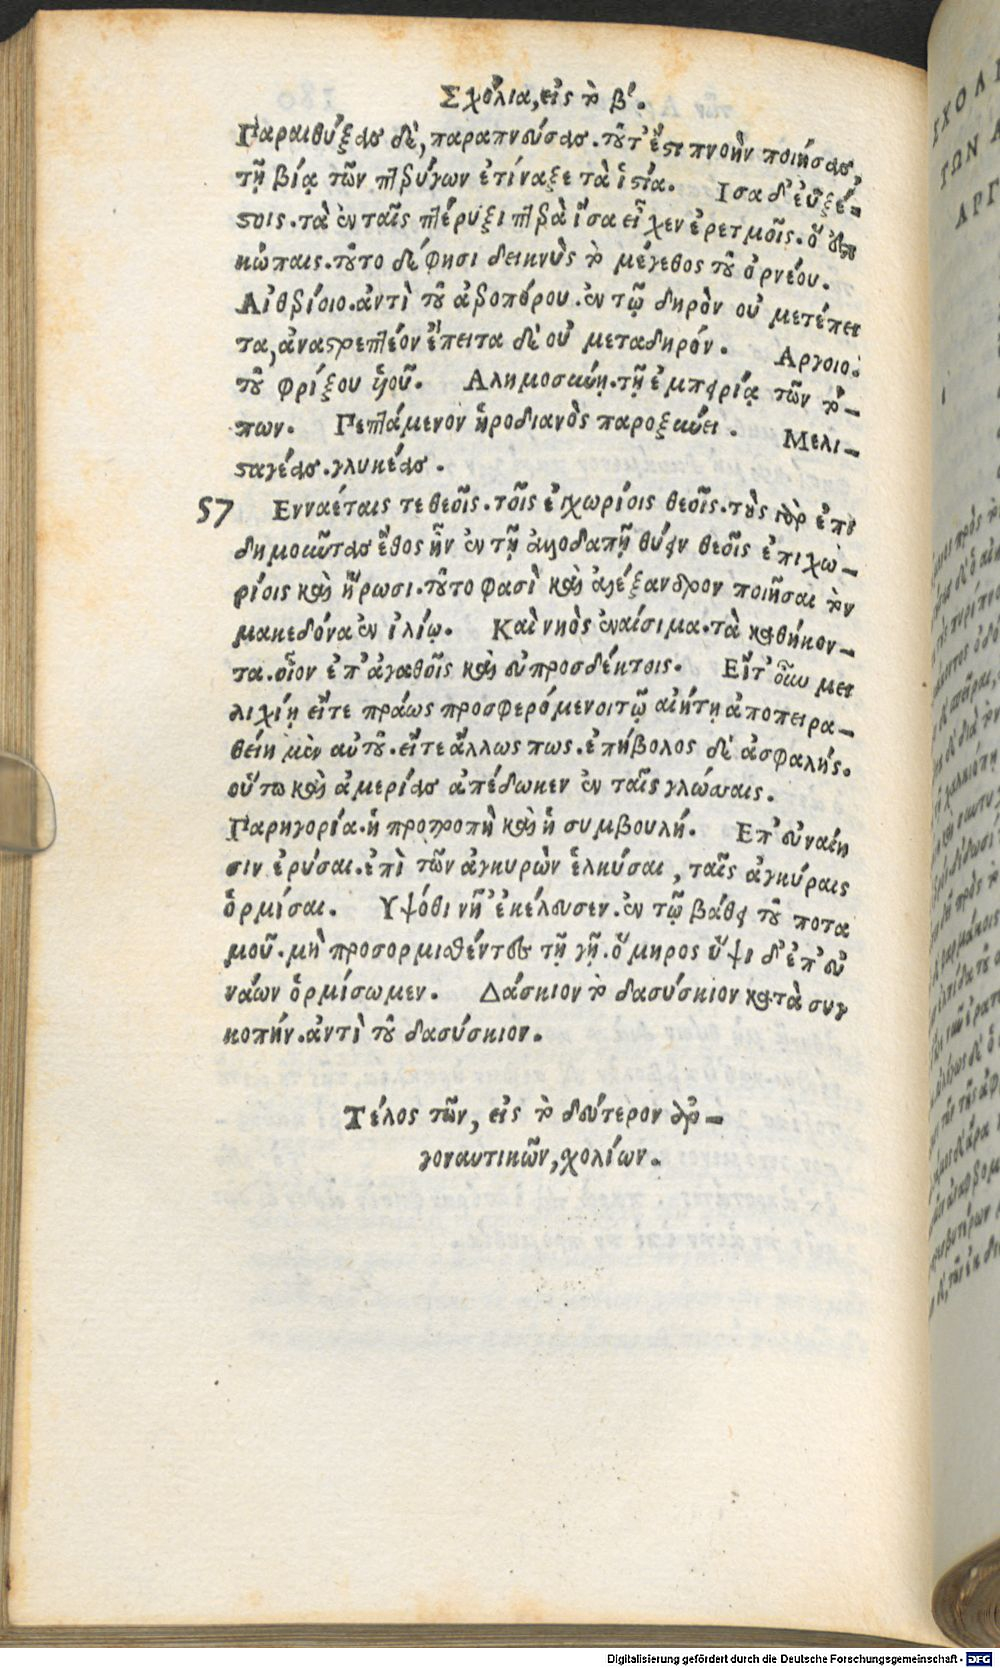 Σχόλια, εἰς τὸ β΄.
Παραιθύξας δὲ, παραπνεύσας. τοῦτ' ἔστι πνοὴν ποιήσας,
τῇ βίᾳ τῶν πτερύγων ἐτίναξε τὰ ἱστία. Ισα δ' ἐϋξέ-
στοις. τὰ ἐν ταῖς πτέρυξι πτερὰ ἴσα εἶχεν ἐρετμοῖς. ὅ ἐστι
κώπαις. τοῦτο δέ φησι δεικνὺς τὸ μέγεθος τοῦ ὀρνέου.
Αἰθερίοιο. ἀντὶ τοῦ ἀεροπόρου. ἐν τῷ δηρὸν οὐ μετέπει
τα, ἀναστρεπτέον ἔπειτα δὲ οὐ μεταδηρόν. Αργοιο.
τοῦ φρίξου ἡοῦ. Αλημοσύνῃ. τῇ ἐμπειρίᾳ τῶν τό-
πων. Πεπτάμενον ἡροδιανὸς παροξύνει. Μελι-
σταγέας. γλυκέας.
57 Ενναέταις τε θεοῖς. τοῖς ἐγχωρίοις θεοῖς. τοὺς γὰρ ἐπι
δημοῦντας ἔθος ἦν ἐν τῇ ἀλλοδαπῇ θύειν θεοῖς ἐπιχω-
ρίοις καὶ ἥρωσι. τοῦτο φασὶ καὶ ἀλέξανδρον ποιῆσαι τὸν
μακεδόνα ἐν ἰλίῳ. Καὶ νηὸς ἐναίσιμα. τὰ καθήκον-
τα. οἷον ἐπ' ἀγαθοῖς καὶ εὐπροσδέκτοις. Εἴτ' οὖν μει
λιχίῃ εἴτε πράως προσφερόμενοι τῷ αἰήτῃ ἀποπειρα-
θείημεν αὐτοῦ. εἴτε ἄλλως πως. ἐπήβολος δὲ ἀσφαλής.
οὕτω καὶ ἀμερίας ἀπέδωκεν ἐν ταῖς γλώσσαις.
Παρηγορία. ἡ προτροπὴ καὶ ἡ συμβουλή. Επ' εὐναίῃ
σιν ἐρύσαι. ἐπὶ τῶν ἀγκυρῶν ἑλκύσαι, ταῖς ἀγκύραις
ὁρμίσαι. Υψόθι νῆ' ἐκέλευσεν. ἐν τῷ βάθει τοῦ ποτα
μοῦ. μὴ προσορμισθέντας τῇ γῇ. ὅμηρος ὕψι δ' ἐπ' εὐ
νάων ὁρμίσωμεν. Δάσκιον τὸ δασύσκιον κατὰ συγ
κοπήν. ἀντὶ τοῦ δασύσκιον.
Τέλος τῶν, εἰς τὸ δεύτερον ἀρ-
γοναυτικῶν, χολίων.
Digitalisierung gefördert durch die Deutsche Forschungsgemeinschaft - DFG